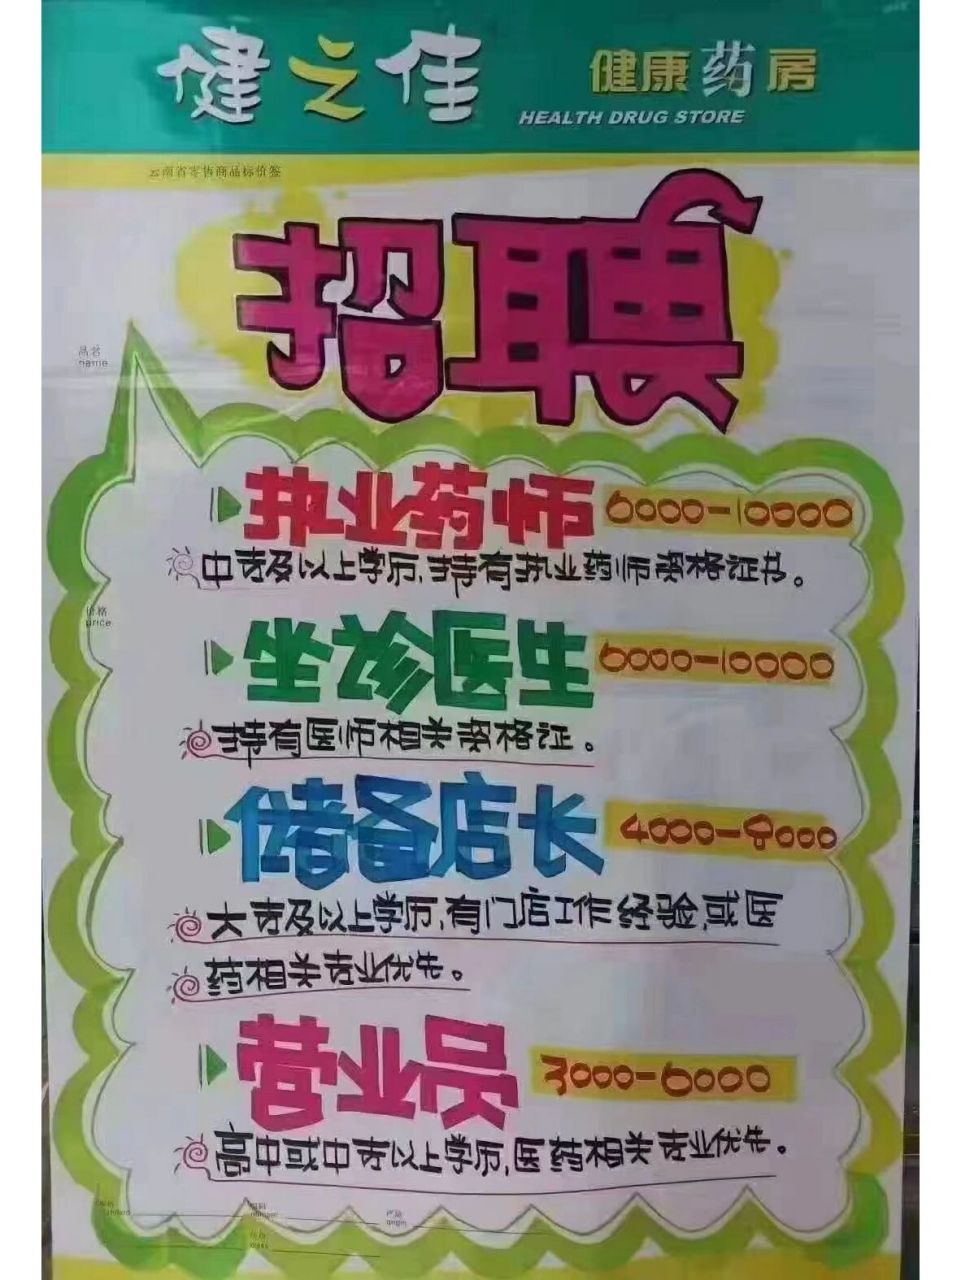 健之佳
健康药房
HEALTH DRUG STORE
云南省零售商品标价签
招聘
品名
name
执业药师 6000-10000
中专及以上学历,持有执业药师资格证书。
价格
price
坐诊医生 6000-10000
持有医师相关资格证。
储备店长
大专及以上学历,有门店工作经验,或医
药相关专业优先。
营业员 3000-6000
高中或中专以上学历,医药相关专业优先。
产地
origin